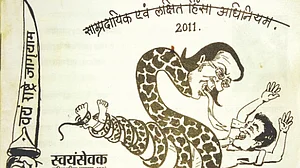 साम्प्रदायिक एवं लक्षित हिंसा अधिनियम.
2011.
राष्ट्र
स्वयंसेवक